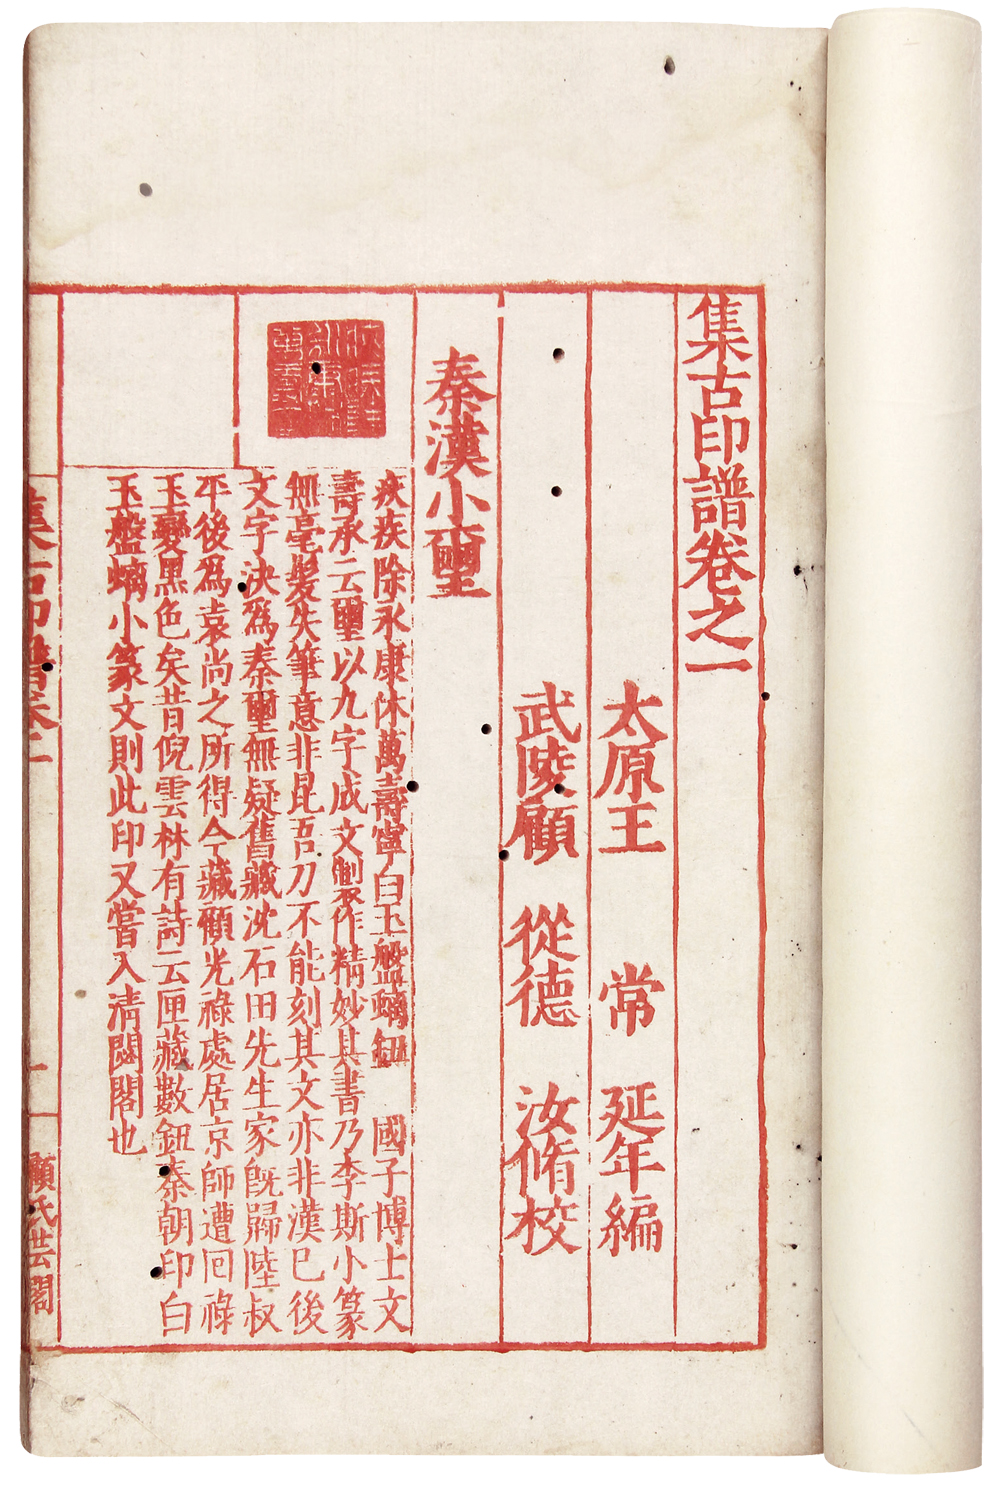 集古印譜卷之一
太原王　常　延年編
武陵顧　從德　汝脩校
秦漢小璽
疢疾除永康休萬壽寧白玉盤螭鈕　國子博士文
壽承云璽以九字成文製作精妙其書乃李斯小篆
無毫髮失筆意非昆吾刀不能刻其文亦非漢已後
文字決爲秦璽無疑舊藏沈石田先生家旣歸陸叔
平後爲袁尚之所得今藏顧光祿處居京師遭回祿
玉變黑色矣昔倪雲林有詩云匣藏數鈕秦朝印白
玉盤螭小篆文則此印又嘗入清閟閣也
集古印譜卷一
一
顧氏芸閣